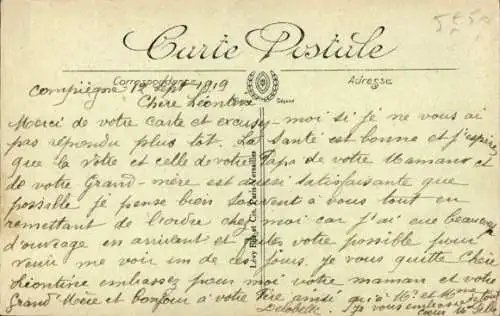 Carte Postale
Correspondance
Adresse
Compiègne 12 Sept 1919
Chère Léontine
Merci de votre carte et excusez-moi si je ne vous ai
pas répondu plus tôt. La santé est bonne et j'espère
que la vôtre et celle de votre Papa de votre Maman et
de votre Grand-mère est aussi satisfaisante que
possible je pense bien souvent à vous tout en
remettant de l'ordre chez moi car j'ai eue beaucoup
d'ouvrage en arrivant et faites votre possible pour
venir me voir un de ces jours. je vous quitte Chère
Léontine embrassez pour moi votre maman et votre
Grand Mère et bonjour à votre Père ainsi qu'à Mr. et Mme
Delobelle. je vous embrasse de tout
cœur
Lévy Fils et Cie, Paris